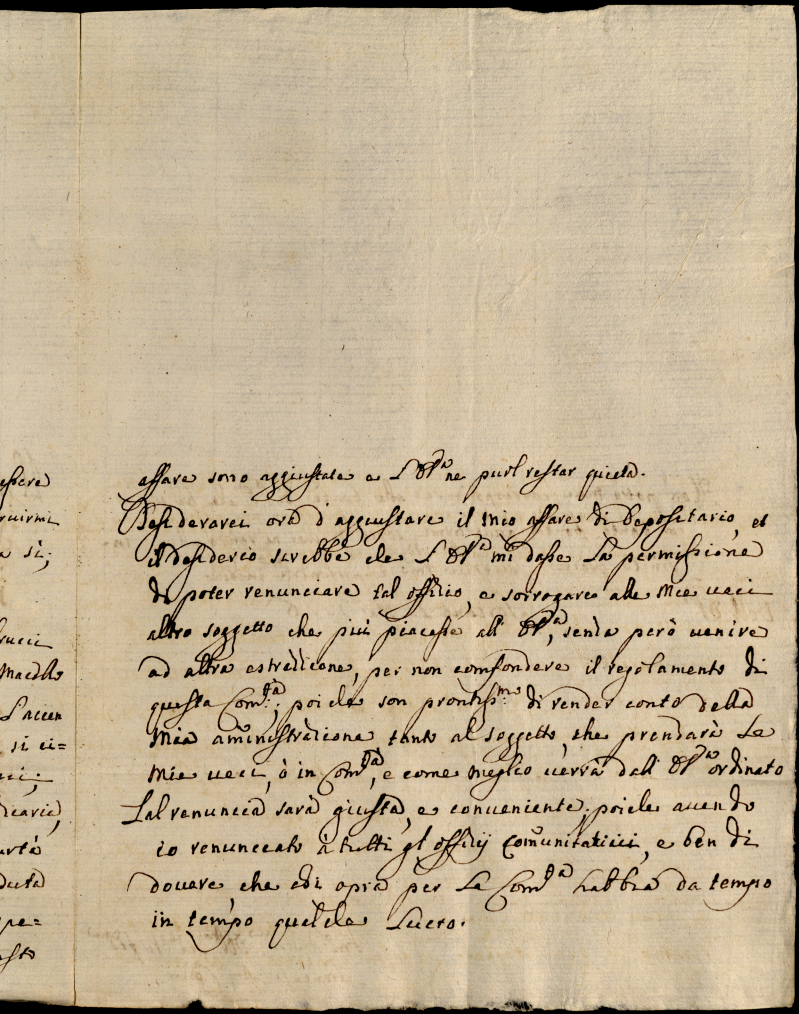 affare sono aggiustate e L'Ill.ma ne puol restar quieta.
Desiderarei ora d'aggiustare il mio affare di Depositario, et
il desiderio sarebbe che L'Ill.ma mi dasse La permissione
di poter renunciare tal offitio, e sorrogare alle mie veci
altro soggetto che più piacesse all'Ill.ma, senza però venire
ad altra estradizione, per non confondere il regolamento di
questa Com.tà; poiche son prontiss.mo di render conto della
mia aministratione tanto al soggetto, che prendarà Le
mie veci, ò in Com.tà, e come meglio verrà dall'Ill.ma ordinato
Tal renuncia sarà giusta, e conveniente, poiche avendo
io renunciato à tutti gl'offitij comunitativi, e ben di
dovere, che chi opra per La Com.tà habbia da tempo
in tempo qualche Lucro.
essere
a sì;
Maello
L'accen
si ci=
dicarie,
pe=